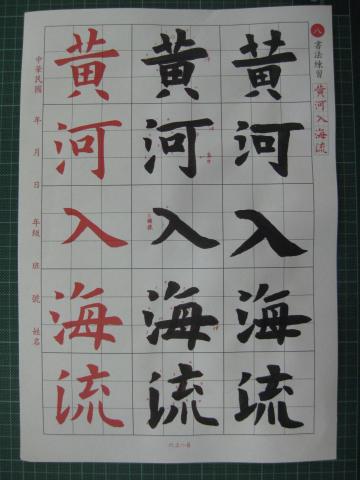 八 書法練習 黄河入海流
黄河入海流
黄河入海流
黄河入海流
中華民國 年 月 日 年級 班 號 姓名